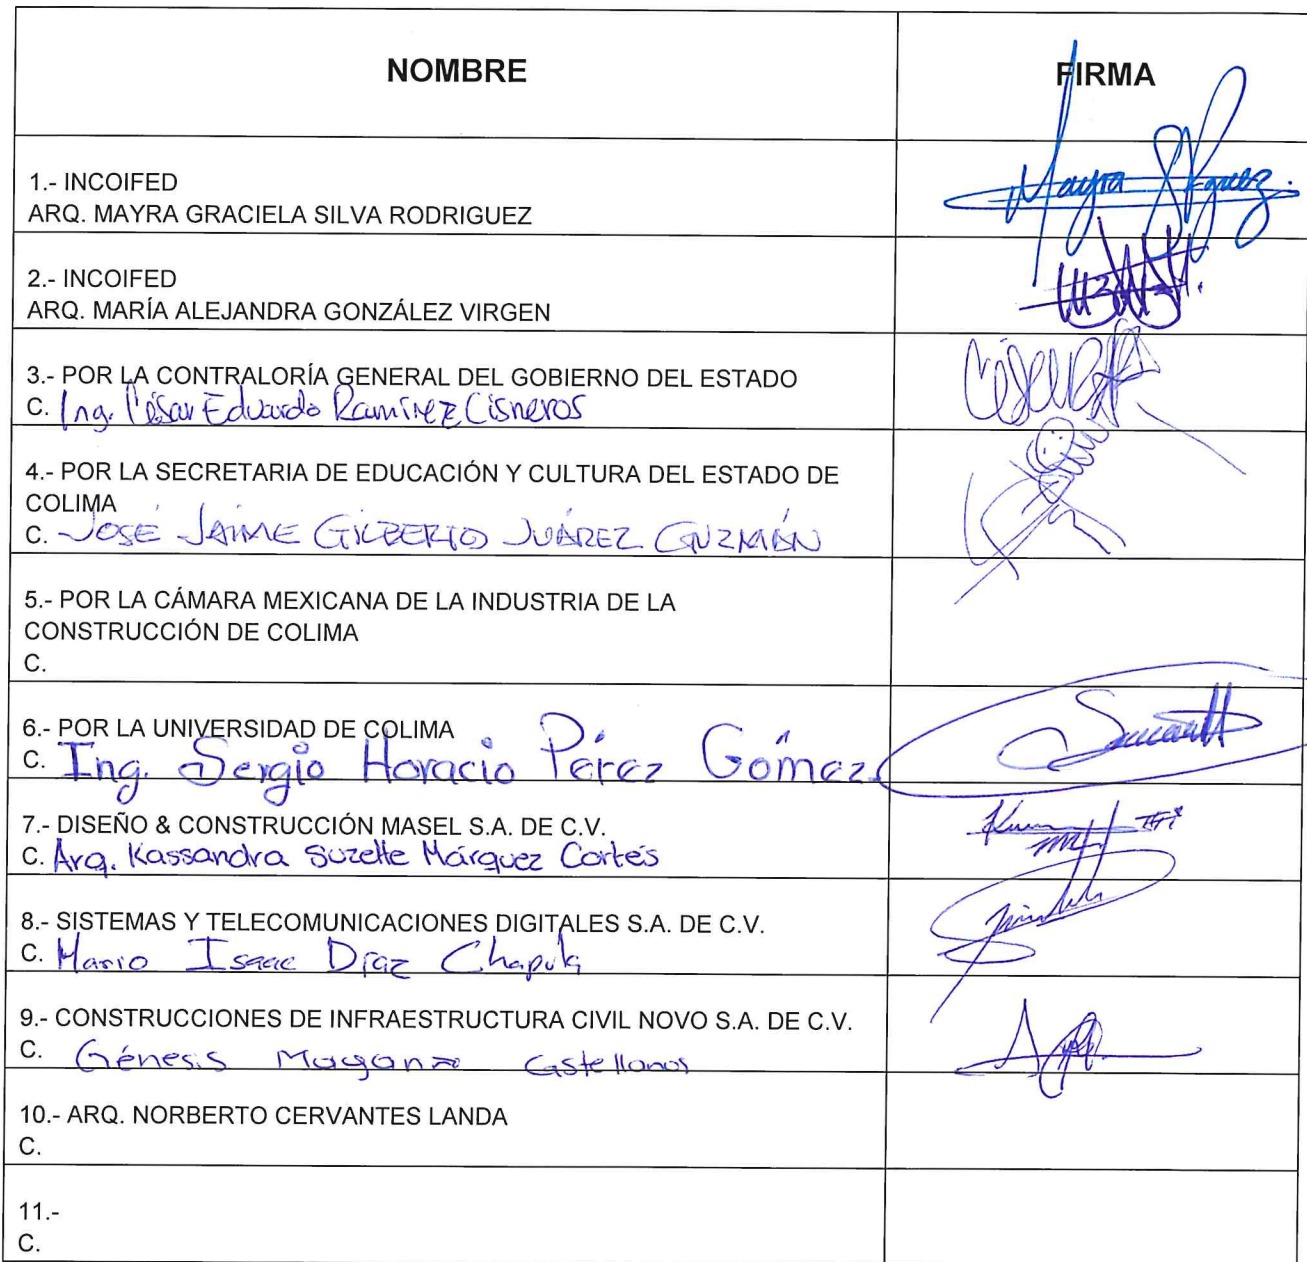 NOMBRE
FIRMA
1.- INCOIFED
ARQ. MAYRA GRACIELA SILVA RODRIGUEZ
2.- INCOIFED
ARQ. MARÍA ALEJANDRA GONZÁLEZ VIRGEN
3.- POR LA CONTRALORÍA GENERAL DEL GOBIERNO DEL ESTADO
C. Ing. César Eduardo Ramírez Cisneros
4.- POR LA SECRETARIA DE EDUCACIÓN Y CULTURA DEL ESTADO DE
COLIMA
C. JOSÉ JAIME GILBERTO JUÁREZ GUZMÁN
5.- POR LA CÁMARA MEXICANA DE LA INDUSTRIA DE LA
CONSTRUCCIÓN DE COLIMA
C.
6.- POR LA UNIVERSIDAD DE COLIMA
C. Ing. Sergio Horacio Pérez Gómez
7.- DISEÑO & CONSTRUCCIÓN MASEL S.A. DE C.V.
C. Arq. Kassandra Suzette Márquez Cortés
8.- SISTEMAS Y TELECOMUNICACIONES DIGITALES S.A. DE C.V.
C. Mario Isaac Díaz Chapula
9.- CONSTRUCCIONES DE INFRAESTRUCTURA CIVIL NOVO S.A. DE C.V.
C. Génesis Magaña Castellanos
10.- ARQ. NORBERTO CERVANTES LANDA
C.
11.-
C.